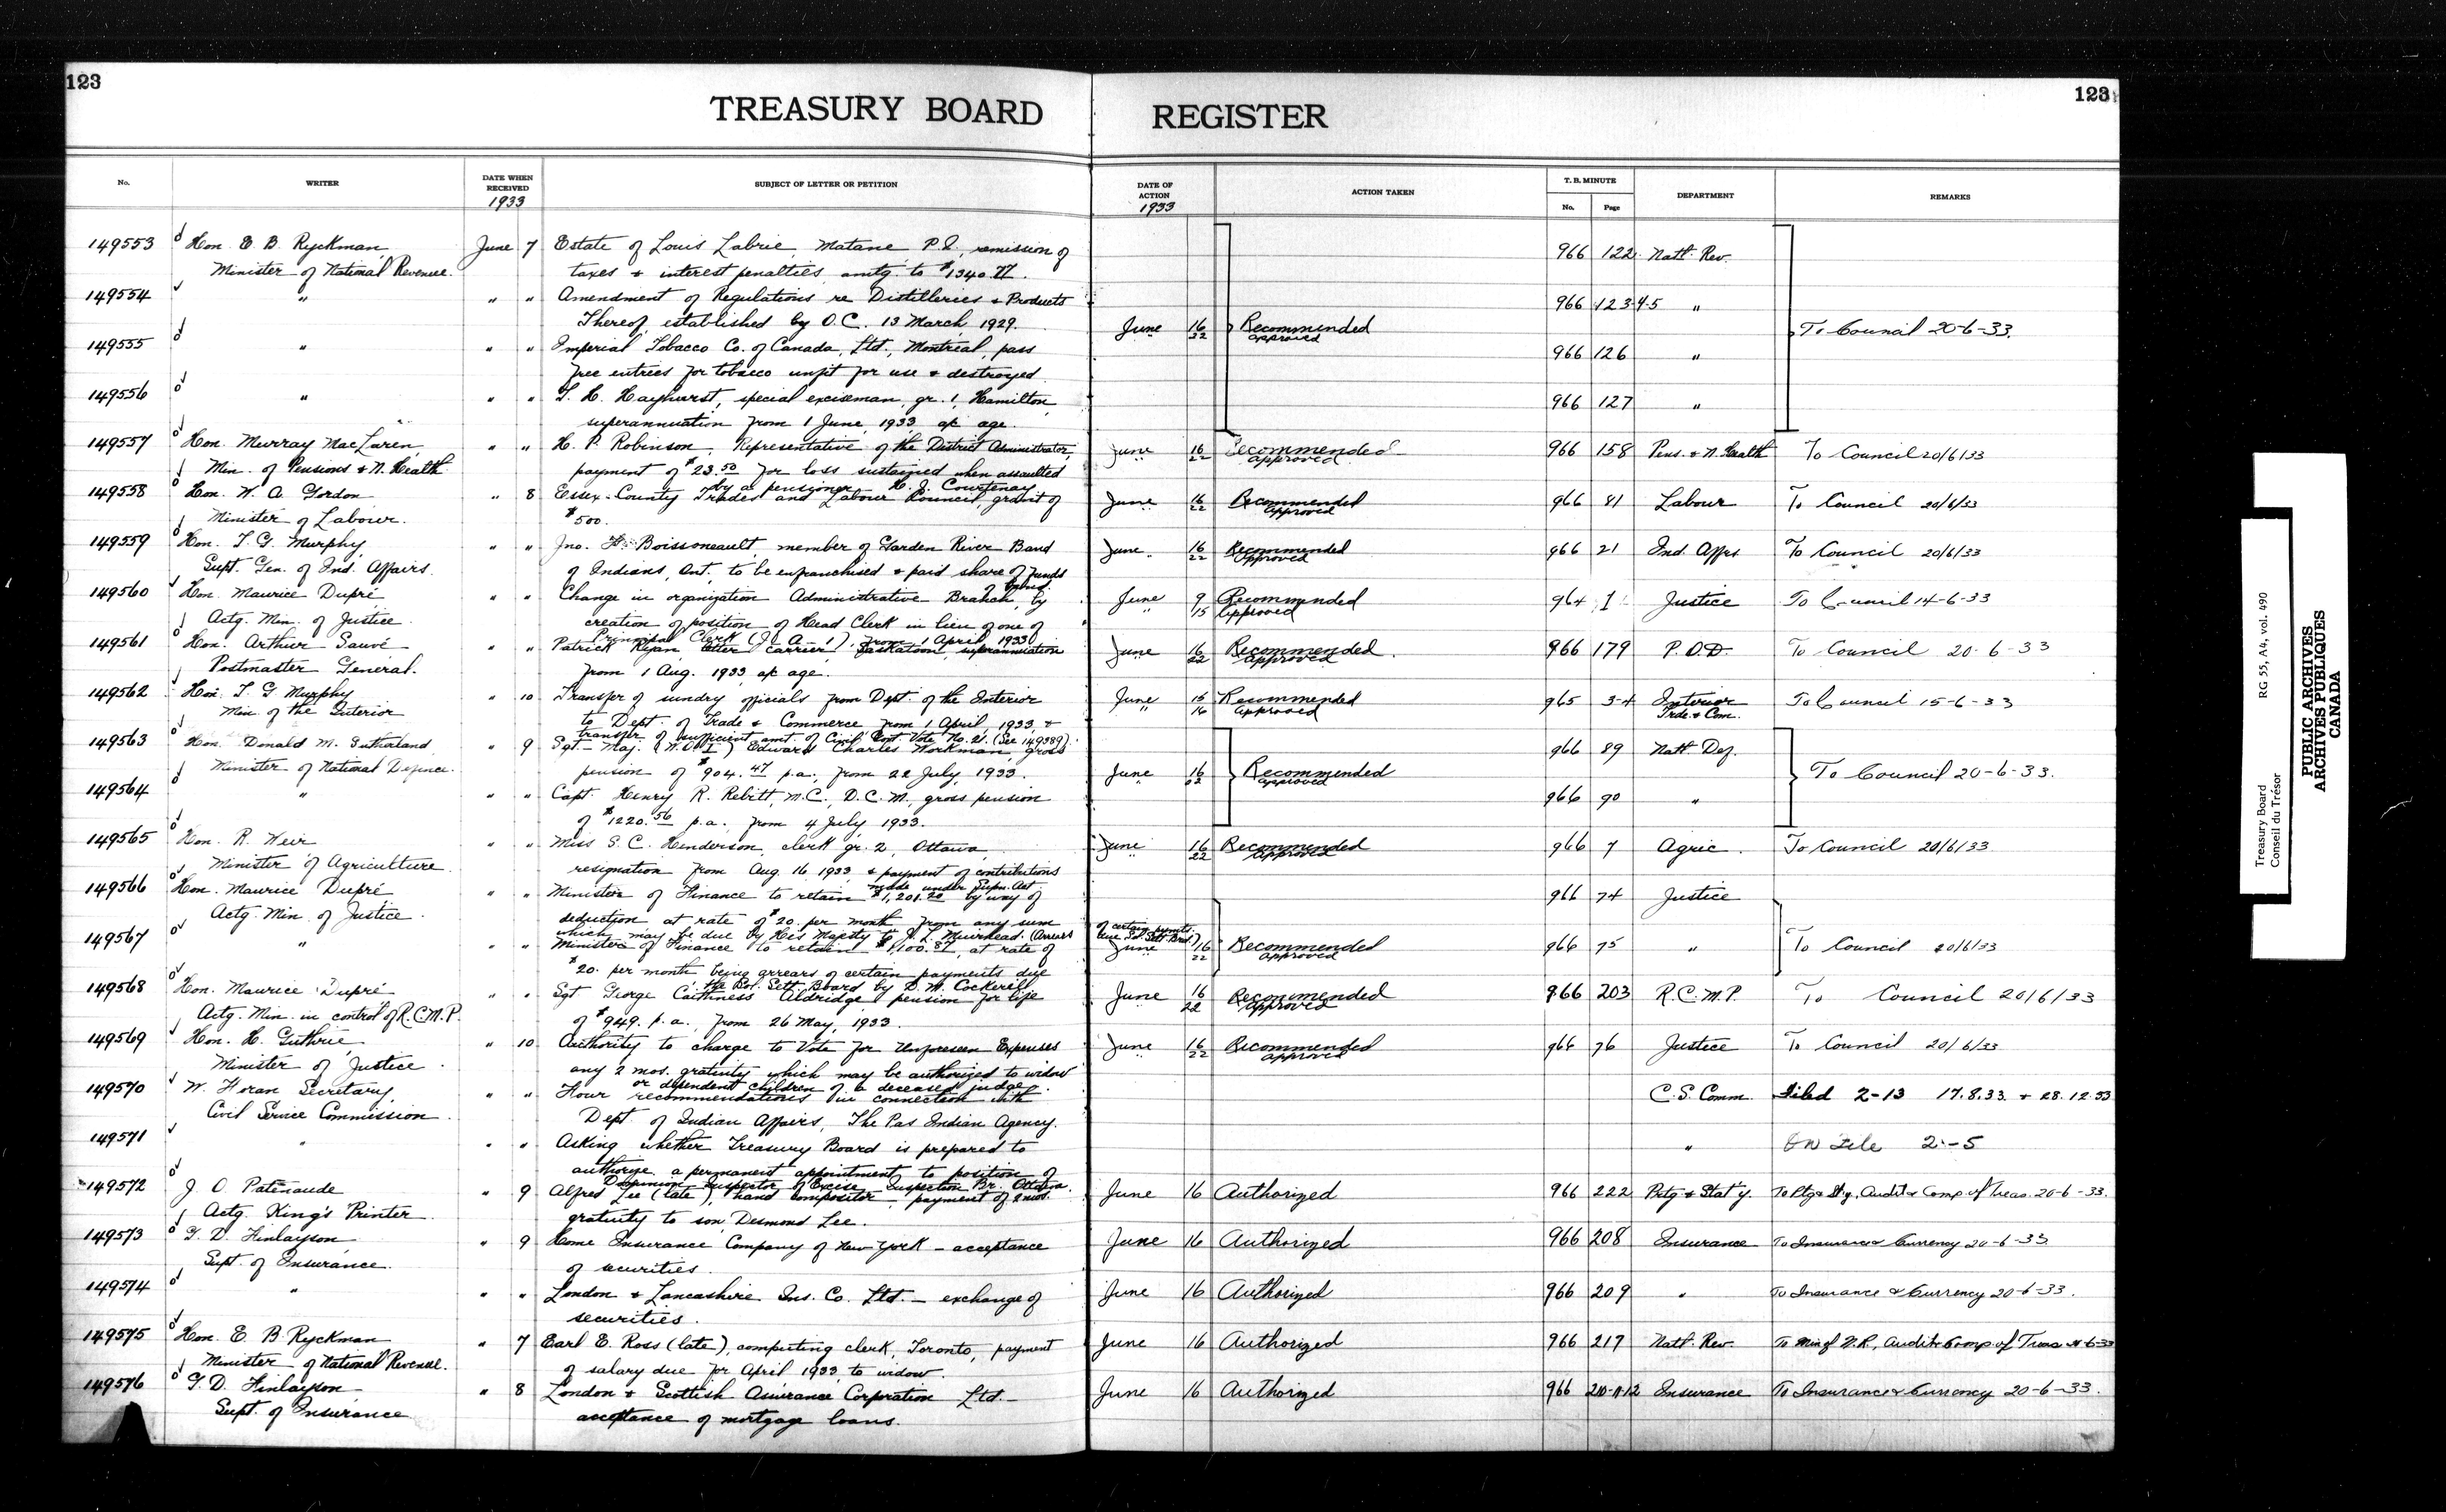 123
123
TREASURY BOARD REGISTER
No. WRITER DATE WHEN RECEIVED 1933 SUBJECT OF LETTER OR PETITION DATE OF ACTION 1933 ACTION TAKEN T. B. MINUTE No. Page DEPARTMENT REMARKS
149553 Hon. E. B. Ryckman, June 7 Estate of Louis Labrie, Matane P.Q., remission of 966 122 Natl. Rev.
Minister of National Revenue. taxes & interest penalties amtg. to $1340.77.
149554 " " " Amendment of Regulations re Distilleries & Products 966 123-4-5 "
Thereof, established by O.C. 13 March, 1929. June 16 Recommended To Council 20-6-33.
" 22 approved
149555 " " " Imperial Tobacco Co. of Canada, Ltd., Montreal, pass 966 126 "
free entries for tobacco unfit for use & destroyed
149556 " " " T. H. Hayhurst, special exciseman, gr. 1, Hamilton, 966 127 "
superannuation from 1 June, 1933, a/c age.
149557 Hon. Murray MacLaren, " " H. P. Robinson, Representative of the District Administrator, June 16 Recommended 966 158 Pens. & N. Health To Council 20/6/33
Min. of Pensions & N. Health payment of $23.50 for loss sustained when assaulted " 22 approved
by a pensioner H. J. Courtenay
149558 Hon. W. A. Gordon " 8 Essex County Trades and Labour Council, grant of June 16 Recommended 966 81 Labour To Council 20/6/33
Minister of Labour. $500. " 22 approved
149559 Hon. T. G. Murphy, " " Jno. H. Boissoneault, member of Garden River Band June 16 Recommended 966 21 Ind. Affrs To Council 20/6/33
Supt. Gen. of Ind. Affairs. of Indians, Ont., to be enfranchised & paid share of funds of Band. " 22 approved
149560 Hon. Maurice Dupré " " Change in organization Administrative Branch, by June 9 Recommended 964 1 Justice To Council 14-6-33
Actg. Min. of Justice. creation of position of Head Clerk in lieu of one of " 15 approved
Principal Clerk (J. A-1), from 1 April, 1933
149561 Hon. Arthur Sauvé " " Patrick Ryan letter carrier, Saskatoon, superannuation June 16 Recommended. 966 179 P.O.D. To Council 20-6-33
Postmaster General. from 1 Aug. 1933, a/c age. " 22 approved
149562 Hon. T. G. Murphy " 10 Transfer of sundry officials from Dept. of the Interior June 15 Recommended 965 3-4 Interior To Council 15-6-33
Min. of the Interior to Dept. of Trade & Commerce from 1 April, 1933, & " 16 approved Trde. & Com.
transfer of sufficient amt. of Civil Govt. Vote No. 21. (See 149389).
149563 Hon. Donald M. Sutherland " 9 Sgt.-Maj. (W.O.I) Edward Charles Workman, gross 966 89 Natl. Def.
Minister of National Defence. pension of $904.47 p.a., from 22 July, 1933. June 16 Recommended To Council 20-6-33.
" 22 approved
149564 " " " Capt. Henry R. Rebitt, M.C., D.C.M., gross pension 966 90 "
of $1220.56 p.a., from 4 July 1933.
149565 Hon. R. Weir " " Miss S. C. Henderson, clerk gr. 2, Ottawa, June 16 Recommended 966 7 Agric. To Council 20/6/33
Minister of Agriculture resignation from Aug. 16, 1933, & payment of contributions " 22 approved
made under Supn. Act
149566 Hon. Maurice Dupré " " Minister of Finance to retain $1,201.20 by way of 966 74 Justice
Actg. Min. of Justice deduction at rate of $20. per month from any sum
which may be due by His Majesty to J. L. Muirhead. (Arrears of certain
149567 " " " Minister of Finance to retain $1,100.87, at rate of June 16 Recommended 966 75 " To Council 20/6/33
$20. per month being arrears of certain payments due " 22 approved
the Sol. Sett. Board by D. M. Cockerill
149568 Hon. Maurice Dupré " " Sgt George Caithness Aldridge, pension for life June 16 Recommended 966 203 R.C.M.P. To Council 20/6/33
Actg. Min. in control of R.C.M.P. of $949. p.a., from 26 May, 1933. " 22 approved
149569 Hon. H. Guthrie " 10 Authority to charge to Vote for Unforeseen Expenses June 16 Recommended 966 76 Justice To Council 20/6/33
Minister of Justice any 2 mos. gratuity which may be authorized to widow " 22 approved
or dependent children of a deceased judge.
149570 W. Foran Secretary, " " Four recommendations in connection with C.S. Comm. Filed 2-13 17.8.33. & 28.12.33
Civil Service Commission Dept. of Indian Affairs, The Pas Indian Agency.
149571 " " " Asking whether Treasury Board is prepared to " On File 2-5
authorize a permanent appointment to position of
Dominion Inspector of Excise Inspection Br. Ottawa.
149572 J. O. Patenaude " 9 Alfred Lee (late), hand compositor, payment of 2 mos. June 16 Authorized 966 222 Prtg & Stat'y. To Ptg & Sty, Audit & Comp of Treas. 20-6-33.
Actg. King's Printer gratuity to son, Desmond Lee.
149573 G. D. Finlayson " 9 Home Insurance Company of New York - acceptance June 16 Authorized 966 208 Insurance To Insurance & Currency 20-6-33
Supt. of Insurance. of securities.
149574 " " " London & Lancashire Ins. Co. Ltd. - exchange of June 16 Authorized 966 209 " To Insurance & Currency 20-6-33.
securities.
149575 Hon. E. B. Ryckman " 7 Earl E. Ross (late), computing clerk, Toronto, payment June 16 Authorized 966 217 Natl. Rev. To Min of N.R., Audit & Comp. of Treas
Minister of National Revenue. of salary due for April 1933, to widow.
149576 G. D. Finlayson " 8 London & Scottish Assurance Corporation Ltd. - June 16 Authorized 966 210-11-12 Insurance To Insurance & Currency 20-6-33.
Supt. of Insurance acceptance of mortgage loans.
Treasury Board RG 55, A4, vol. 490
Conseil du Trésor
PUBLIC ARCHIVES
ARCHIVES PUBLIQUES
CANADA